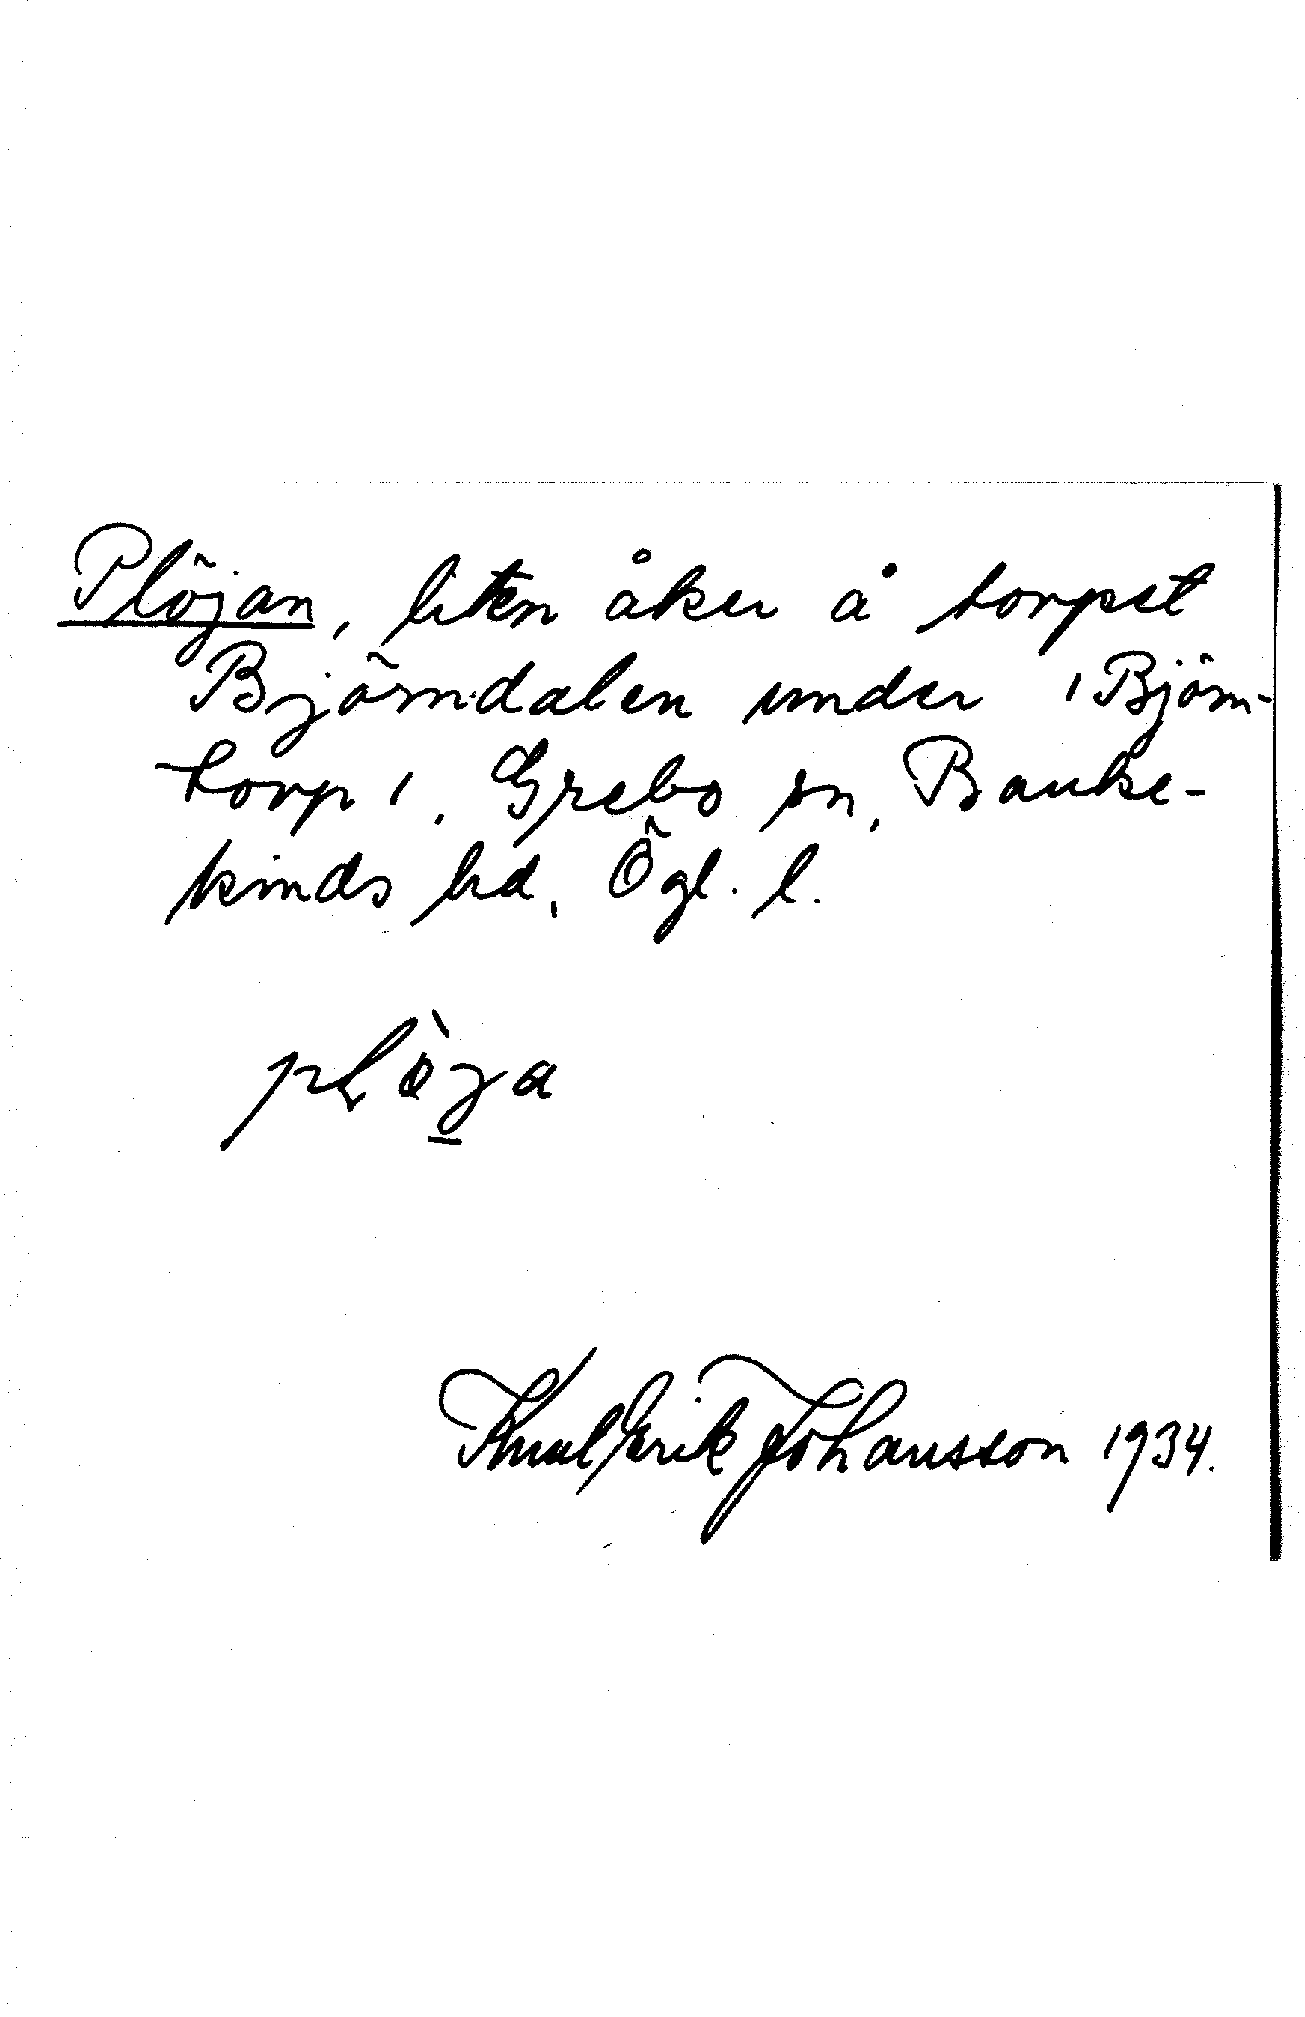 Plöjan, liten åker å torpet
Björndalen under 'Björn-
torp', Grebo sn, Banke-
kinds hd, Ögl. l.
plö̀ja
Knut Erik Johansson 1934.